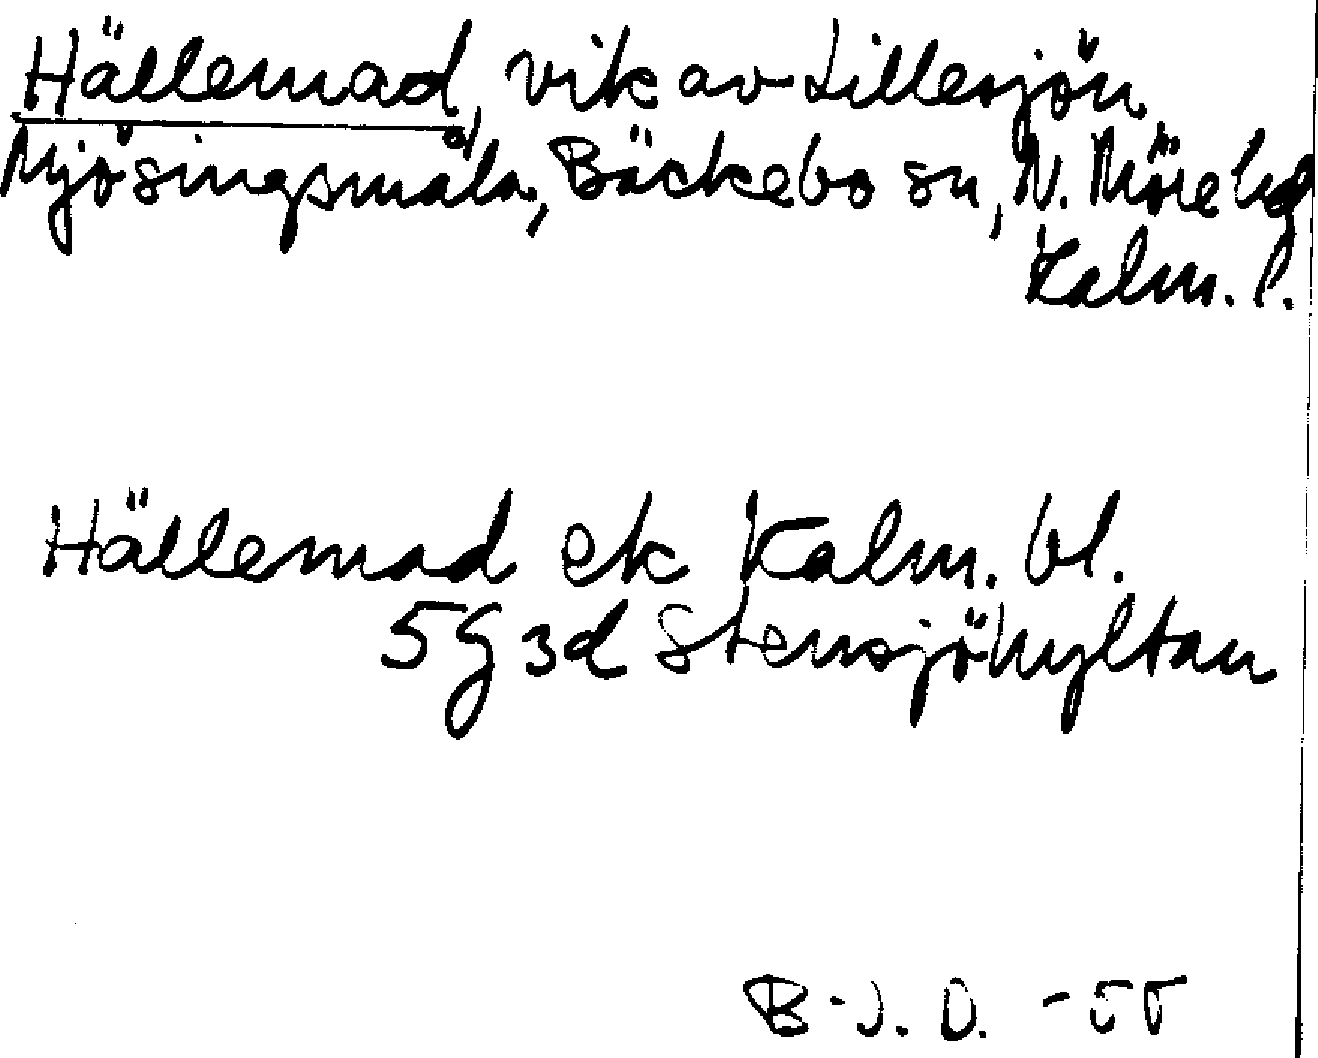 Hällemad, vik av Lillesjön
Mjösingsmåla, Bäckebo sn, N. Möre hd
Kalm. l.
Hällemad ek Kalm. bl.
5G3d Stensjöhyltan
B-J. D. -55